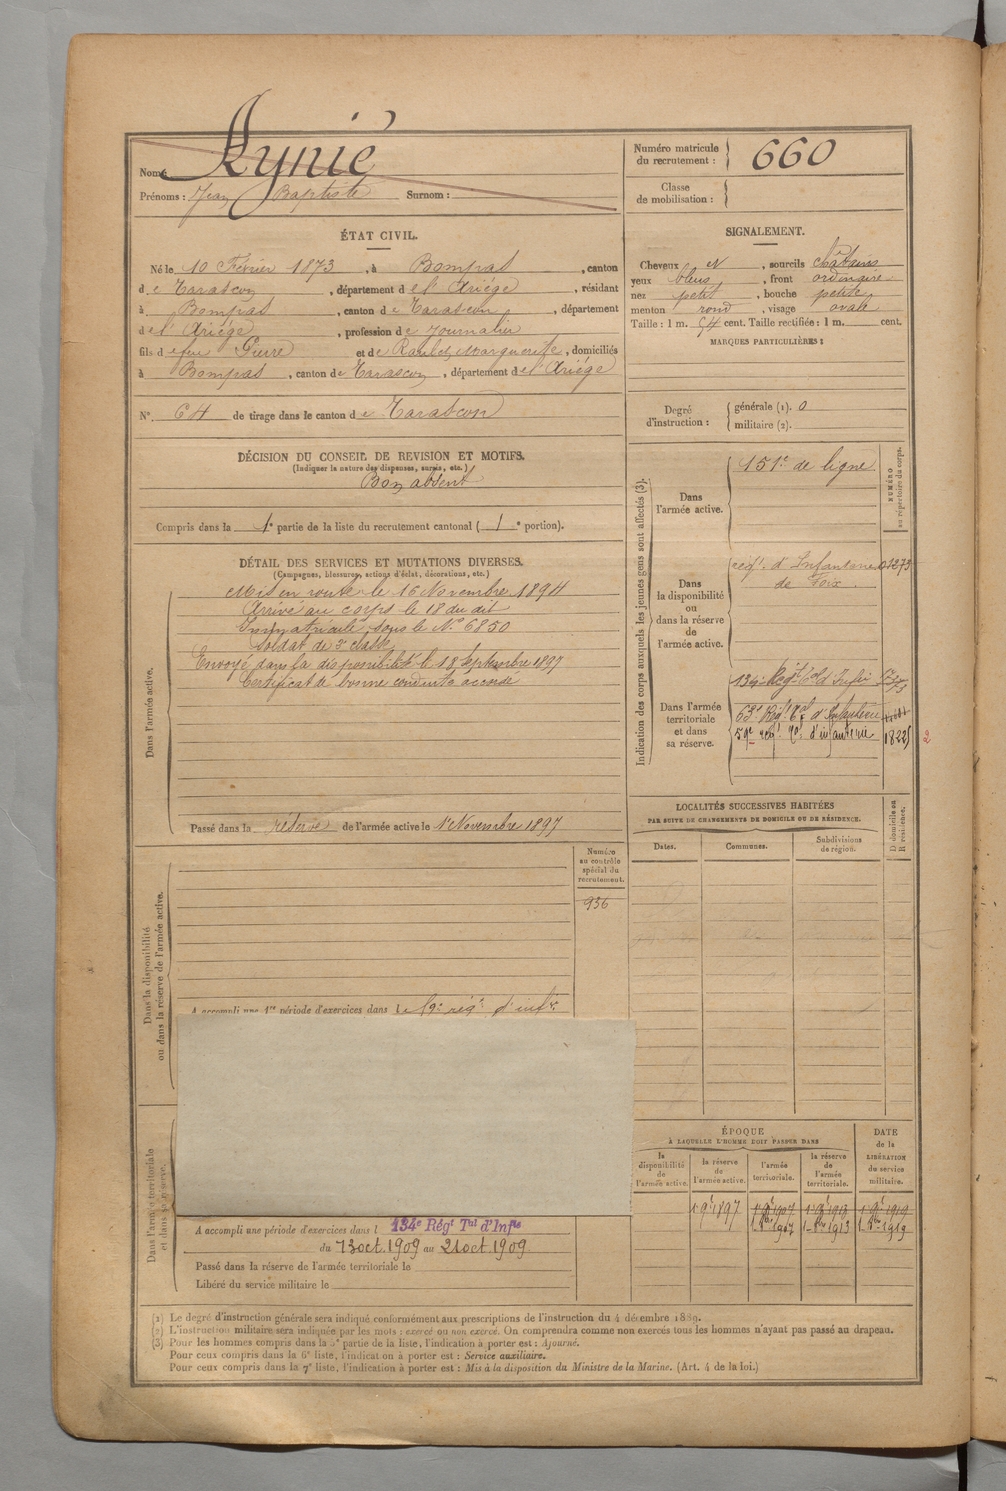 Nom : Aynié
Prénoms : Jean Baptiste Surnom :
Numéro matricule du recrutement : 660
Classe de mobilisation :
ÉTAT CIVIL.
Né le 10 Février 1873, à Bompas, canton
de Tarascon, département de l'Ariège, résidant
à Bompas, canton de Tarascon, département
de l'Ariège, profession de Journalier
fils de feu Pierre et de Marguerite, domiciliés
à Bompas, canton de Tarascon, département de l'Ariège
N° 64 de tirage dans le canton de Tarascon
SIGNALEMENT.
Cheveux et, sourcils châtains
yeux bleus, front ordinaire
nez petit, bouche petite
menton rond, visage ovale
Taille : 1 m. 54 cent. Taille rectifiée : 1 m. cent.
MARQUES PARTICULIÈRES :
Degré d'instruction : générale (1). 0
militaire (2).
DÉCISION DU CONSEIL DE REVISION ET MOTIFS.
(Indiquer la nature des dispenses, sursis, etc.)
Bon absent
Compris dans la 1e partie de la liste du recrutement cantonal ( 1 e portion).
DÉTAIL DES SERVICES ET MUTATIONS DIVERSES.
(Campagnes, blessures, actions d'éclat, décorations, etc.)
Dans l'armée active.
Mis en route le 16 Novembre 1894
Arrivé au corps le 18 du dit
Immatriculé sous le N° 6850
Soldat de 2e classe
Envoyé dans la disponibilité le 18 Septembre 1897
Certificat de bonne conduite accordé
Passé dans la réserve de l'armée active le 1er Novembre 1897
Indication des corps auxquels les jeunes gens sont affectés (3).
NUMÉRO au répertoire du corps.
Dans l'armée active.
151e de ligne
Dans la disponibilité ou dans la réserve de l'armée active.
régt. d'Infanterie
de Foix
Dans l'armée territoriale et dans sa réserve.
134e Régt
63e Régt Tal d'Infanterie
59e régt d'infanterie 1822
LOCALITÉS SUCCESSIVES HABITÉES
PAR SUITE DE CHANGEMENTS DE DOMICILE OU DE RÉSIDENCE.
Dates. Communes. Subdivisions de région.
D domicile ou R résidence.
Numéro au contrôle spécial du recrutement.
936
Dans la disponibilité ou dans la réserve de l'armée active.
A accompli une 1re période d'exercices dans le 59e régt d'infie
Dans l'armée territoriale et dans sa réserve.
A accompli une période d'exercices dans l 134e Régt Tal d'Infie
du 13 oct. 1909 au 21 oct. 1909
Passé dans la réserve de l'armée territoriale le
Libéré du service militaire le
ÉPOQUE
À LAQUELLE L'HOMME DOIT PASSER DANS
la disponibilité de l'armée active.
la réserve de l'armée active.
l'armée territoriale.
la réserve de l'armée territoriale.
DATE de la LIBÉRATION du service militaire.
1 9e 1897 1 9e 1907 1 9e 1913 1 9e 1919
1907 1913 1919
(1) Le degré d'instruction générale sera indiqué conformément aux prescriptions de l'instruction du 4 décembre 1889.
(2) L'instruction militaire sera indiquée par les mots : exercé ou non exercé. On comprendra comme non exercés tous les hommes n'ayant pas passé au drapeau.
(3) Pour les hommes compris dans la 5e partie de la liste, l'indication à porter est : Ajourné.
Pour ceux compris dans la 6e liste, l'indication à porter est : Service auxiliaire.
Pour ceux compris dans la 7e liste, l'indication à porter est : Mis à la disposition du Ministre de la Marine. (Art. 4 de la loi.)